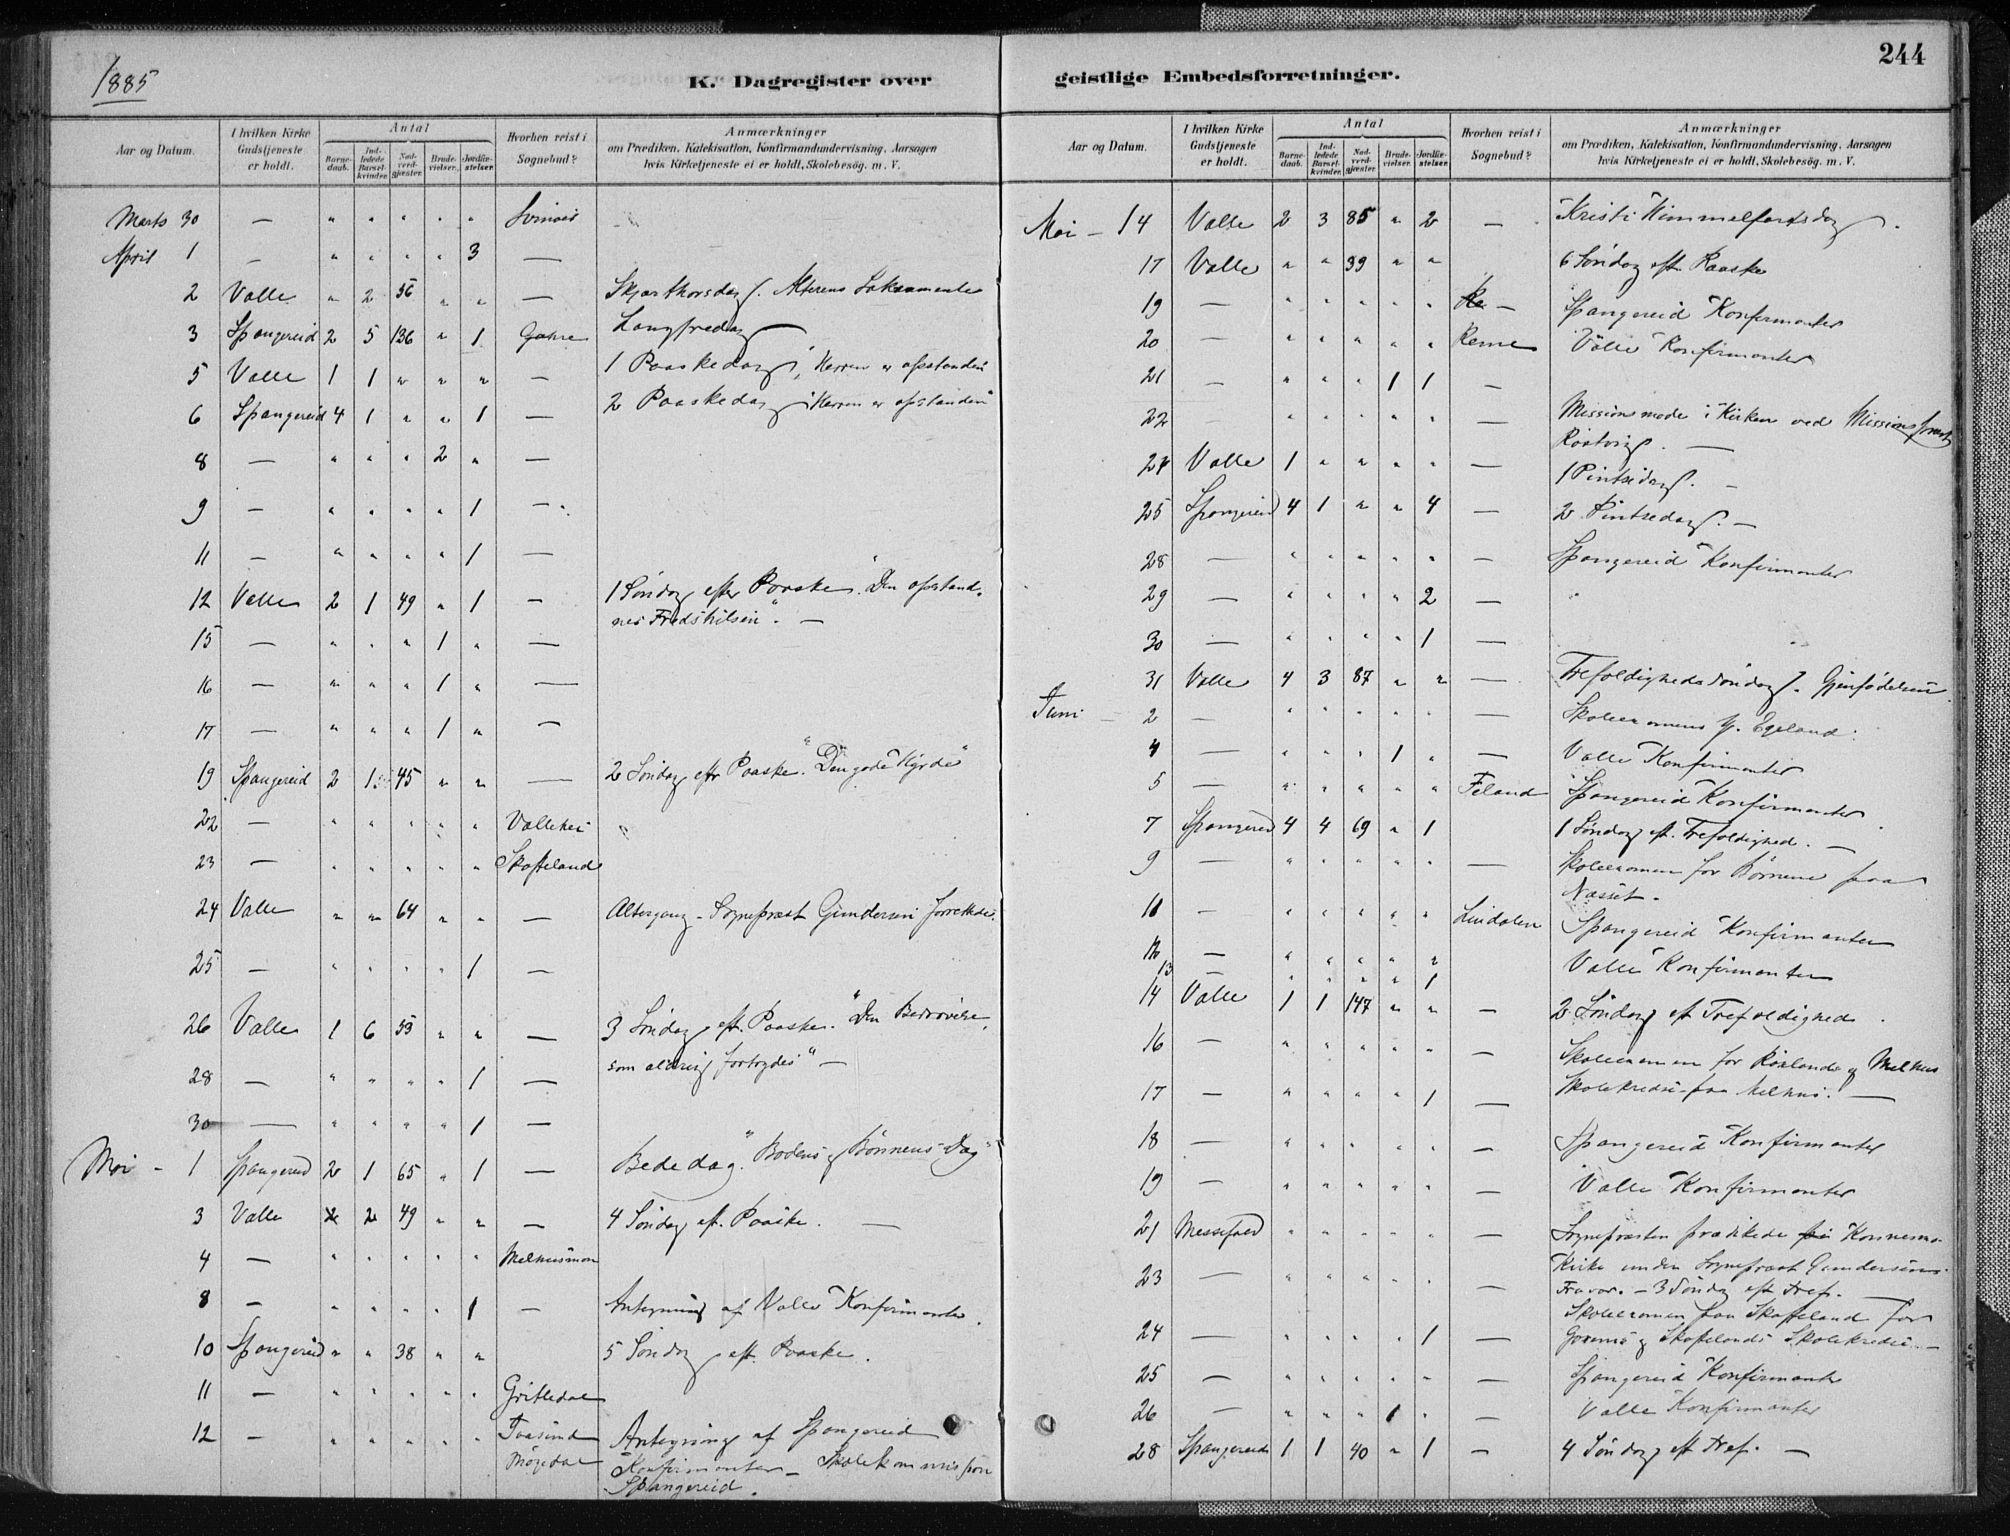 1885
K. Dagregister over
Aar og Datum.
I hvilken Kirke Gudstjeneste er holdt.
Antal
Barnedaab.
Indledede Barselkvinder.
Nadverdgjæster.
Brudevielser.
Jordfæstelser.
Hvorhen reist i Sognebud?
Anmærkninger
om Prædiken, Katekisation, Konfirmandundervisning, Aarsagen
hvis Kirketjeneste ei er holdt, Skolebesög. m. V.
Marts 30 — " " " " " Svinøis
April 1 — " " " " 3 —
2 Valle " 2 56 " " — Skjærthorsdag. Alterens Sakramente
3 Spangereid 2 5 136 " 1 Gahre Langfredag
5 Valle 1 1 " " " — 1 Paaskedag, "Herren er opstanden"
6 Spangereid 4 1 " " 1 — 2 Paaskedag "Herren er opstanden"
8 — " " " 2 " —
9 — " " " " 1 —
11 — " " " " 1 —
12 Valle 2 1 49 " 1 — 1 Søndag efter Paaske. "Den opstand-
nes Fredshilsen". —
15 — " " " 1 " —
16 — " " " 1 " —
17 — " " " 1 " —
19 Spangereid 2 1 45 " " — 2 Søndag eftr Paaske. "Den gode Hyrde"
22 — " " " " " Vallehei
23 — " " " " " Skofteland
24 Valle " " 64 " " — Altergang – Sognepræst Gundersen forrettede.
25 — " " " " 1 —
26 Valle 1 6 53 " " — 3 Søndag eft. Paaske. "Den Bedrøvelse,
som aldrig fortrydes" —
28 — " " " " 1 —
30 — " " " " 1 —
Mai – 1 Spangereid 2 1 65 " 1 — Bededag. "Bodens og Bønnens Dag"
3 Valle 2 2 49 " " — 4 Søndag eft. Paaske. —
4 — " " " " " Melhusmon
8 — " " " " 1 — Antegning af Valle Konfirmanter.
10 Spangereid " " 38 " " 5 Søndag eft. Paaske.
11 — " " " " " Gritledal
12 — " " " " " Antegning af Spangereid
Konfirmanter – Skolekommission
Spangereid.
244
geistlige Embedsforretninger.
Aar og Datum.
I hvilken Kirke Gudstjeneste er holdt.
Antal
Barnedaab.
Indledede Barselkvinder.
Nadverdgjæster.
Brudevielser.
Jordfæstelser.
Hvorhen reist i Sognebud?
Anmærkninger
om Prædiken, Katekisation, Konfirmandundervisning, Aarsagen
hvis Kirketjeneste ei er holdt, Skolebesög. m. V.
Mai – 14 Valle 2 3 85 " 2 — Kristi Himmelfartsdag.
17 Valle " " 39 " " 6 Søndag eft. Paaske
19 — " " " " " — Spangereid Konfirmanter
20 — " " " " " Reme Valle Konfirmanter
21 — " " " 1 1 —
22 — " " " " " — Missionsmøde i Kirken ved Missionsprest
Røstvig. —
24 Valle 1 " " " " — 1 Pintsedag. —
25 Spangereid 4 1 " " 4 — 2 Pintsedag. —
28 — " " " " " — Spangereid Konfirmanter
29 — " " " " 2 —
30 — " " " " 1 —
31 Valle 4 3 87 " " — Trefoldigheds Søndag. Gjenfødelsen
Juni – 2 — " " " " " — Skoleexamens p. Egeland.
4 — " " " 1 " — Valle Konfirmanter
5 — " " " " " Feland Spangereid Konfirmanter
7 Spangereid 4 4 69 " 1 1 Søndag eft. Trefoldighed. —
9 — " " " " " — Skoleexamen for Børnene paa
Næsset.
11 — " " " " " Lindalen Spangereid Konfirmanter
12 — " " " " " Valle Konfirmanter
13 — " " " " 1
14 Valle 1 1 147 " " — 2 Søndag eft Trefoldighed.
16 — " " " " " — Skoleexamen for Røslands og Melhus
17 — " " " " 1 — Skolekredse paa Melhus. —
18 — " " " " " — Spangereid Konfirmanter
19 — " " " " " — Valle Konfirmanter
21 Messefald " " " " " — Sognepræsten prædikede i Konsmo
Kirke under Sognepræst Gundersens
23 — " " " " " — Fravær. – 3 Søndag eft Tref. —
Skoleexamen paa Skofteland for
24 — " " " " 1 — og Skoftelands Skolekredse —
25 — " " " " " — Spangereid Konfirmanter
26 — " " " 1 " — Valle Konfirmanter
28 Spangereid 1 1 40 " 1 — 4 Søndag eft Tref. —